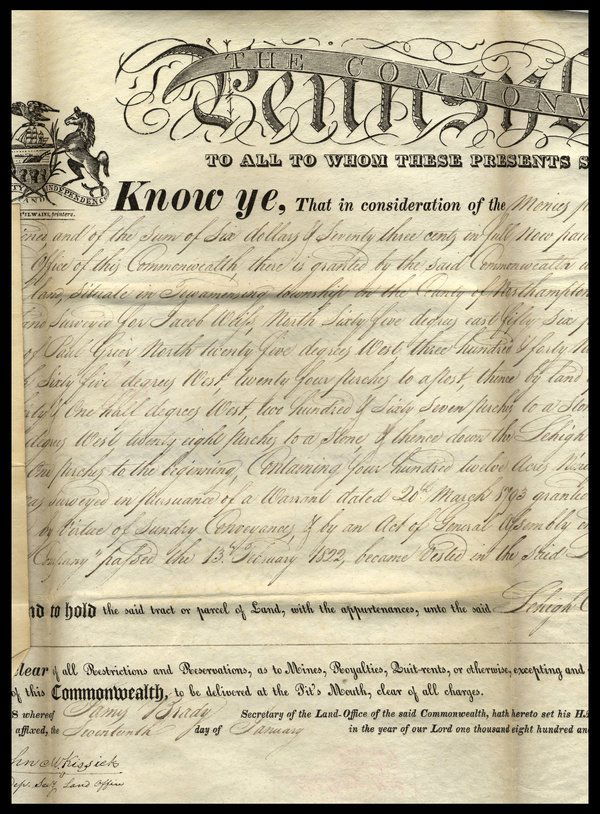 THE COMMONW
Pennsyl
TO ALL TO WHOM THESE PRESENTS S
INDEPENDENCE
AND
M'ELWAIN, printers.
Know ye, That in consideration of the Monies p
and of the Sum of Six dollars & Seventy three cents in full Now paid
Office of this Commonwealth there is granted by the said Commonwealth
land, Situate in Towamensing township in the County of Northampton
and Surveyed for Jacob Weiss North Sixty five degrees east fifty Six p
of Paul Grier North twenty five degrees West three hundred & forty
Sixty five degrees West twenty four perches to a post thence by land
& One half degrees West, two hundred & Sixty Seven perches to a Stone
degrees West twenty eight perches to a Stone & thence down the Lehigh
One perches to the beginning, Containing four hundred twelve Acres
was surveyed in pursuance of a Warrant dated 20th March 1793 granted
by Virtue of Sundry Conveyances & by an Act of General Assembly
Company" passed the 13th February 1822, became Vested in the Said
nd to hold the said tract or parcel of Land, with the appurtenances, unto the said Lehigh C
clear of all Restrictions and Reservations, as to Mines, Royalties, Quit-rents, or otherwise, excepting and
of this Commonwealth, to be delivered at the Pit's Mouth, clear of all charges.
s whereof Jams Brady Secretary of the Land-Office of the said Commonwealth, hath hereto set his H
affixed, the Seventeenth day of January in the year of our Lord one thousand eight hundred an
hn McKissick
Dep. Secy. Land Office